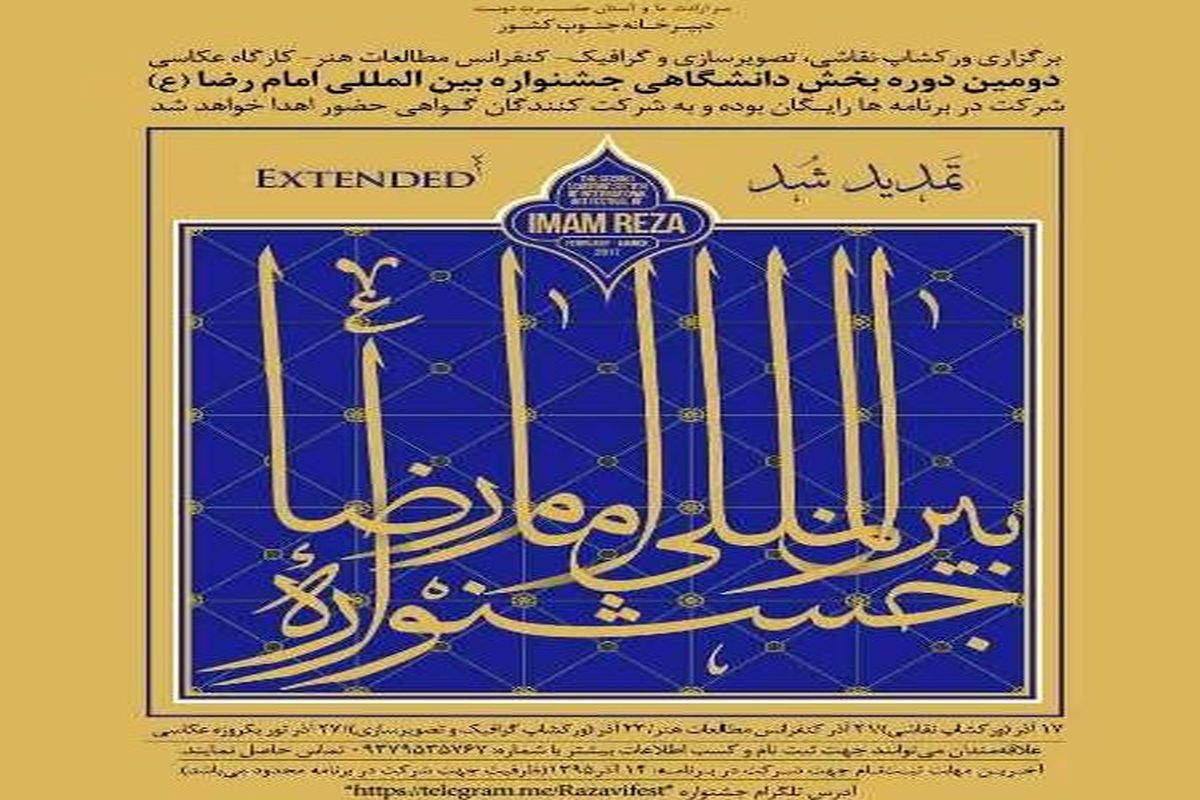 دبیرخانه جنوب کشور
برگزاری ورکشاپ نقاشی، تصویرسازی و گرافیک- کنفرانس مطالعات هنر- کارگاه عکاسی
دومین دوره بخش دانشگاهی جشنواره بین المللی امام رضا (ع)
شرکت در برنامه ها رایگان بوده و به شرکت کنندگان گواهی حضور اهدا خواهد شد
تمدید شد
EXTENDED
IMAM REZA
2017
بین المللی امام رضا ع
جشنوارهٔ
۱۷ آذر (ورکشاپ نقاشی)/ ۲۱ آذر کنفرانس مطالعات هنر/ ۲۴ آذر (ورکشاپ گرافیک و تصویرسازی)/ ۲۷ آذر تور یکروزه عکاسی
علاقه‌مندان می‌توانند جهت ثبت نام و کسب اطلاعات بیشتر با شماره: ۰۹۳۷۹۵۳۵۷۶۷ تماس حاصل نمایند
آخرین مهلت ثبت‌نام جهت شرکت در برنامه: ۱۴ آذر ۱۳۹۵ (ظرفیت جهت شرکت در برنامه محدود می‌باشد).
آدرس تلگرام جشنواره "https://telegram.me/Razavifest"